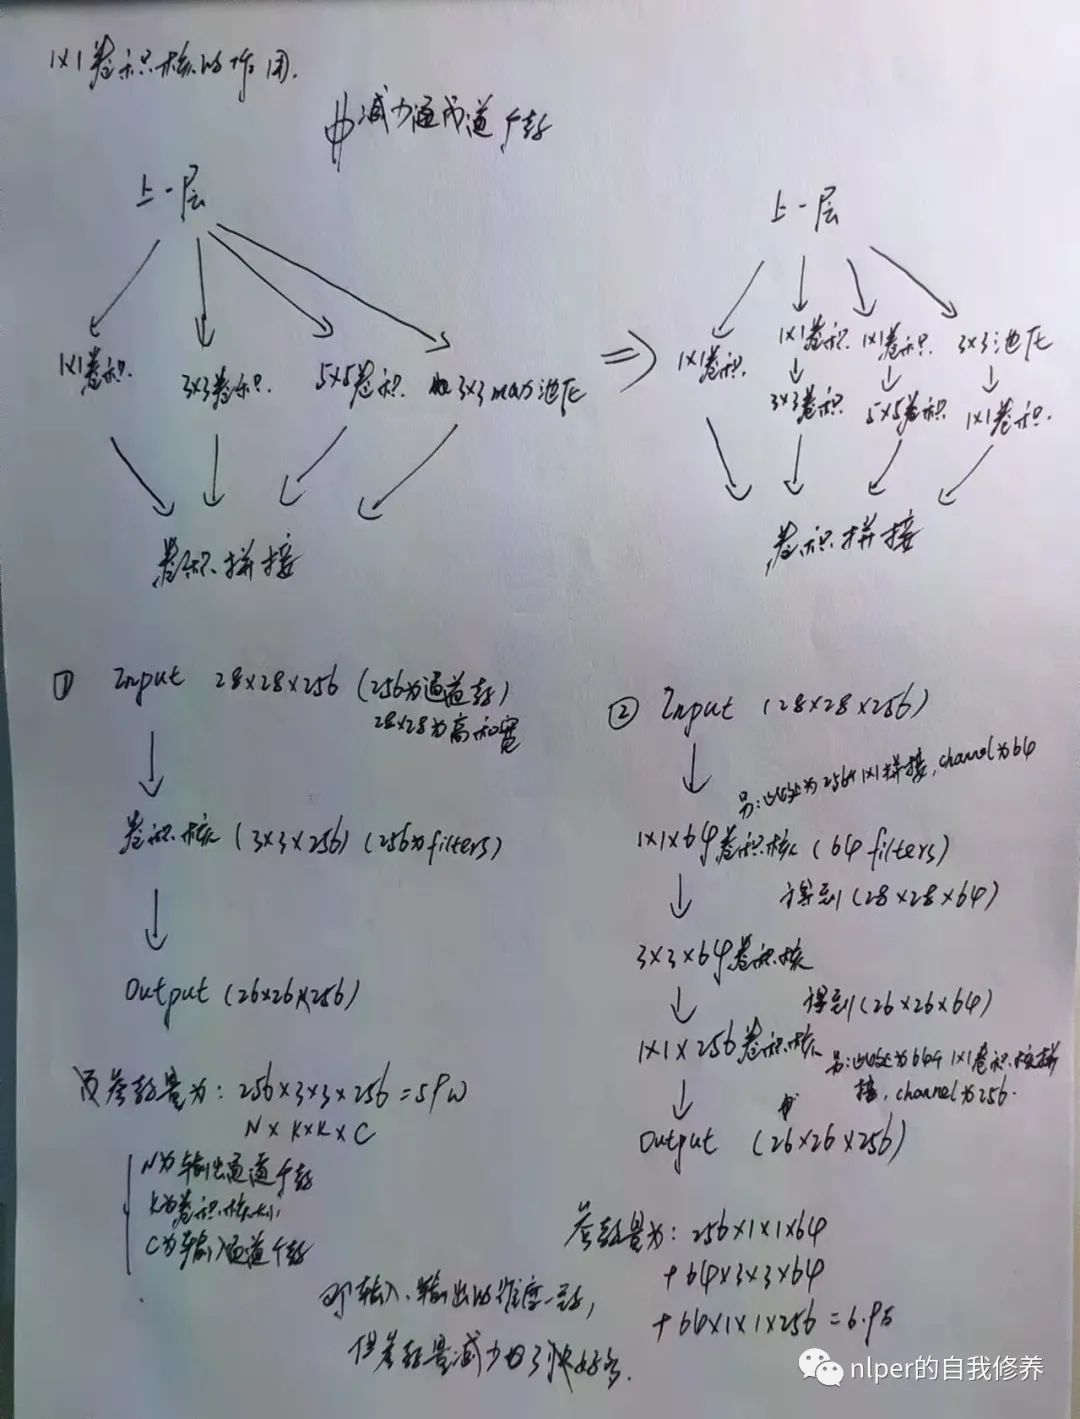 1×1卷积核的作用.
减少通道个数
上一层
1×1卷积. 3×3卷积. 5×5卷积. 3×3max池化
卷积拼接
⇒
上一层
1×1卷积. 1×1卷积. 1×1卷积. 3×3池化
3×3卷积 5×5卷积 1×1卷积.
卷积拼接
① Input 28×28×256 (256为通道数)
28×28为高和宽
卷积核 (3×3×256) (256为filters)
Output (26×26×256)
参数量为: 256×3×3×256=59W
N×K×K×C
N为输出通道个数
K为卷积核大小
C为输入通道个数
② Input (28×28×256)
另:此处为256个1×1拼接,channel为64
1×1×64卷积核 (64 filters)
得到(28×28×64)
3×3×64卷积核
得到(26×26×64)
1×1×256卷积核
另:此处为64个1×1卷积核拼
接, channel为256.
Output (26×26×256)
参数量为: 256×1×1×64
+64×3×3×64
+64×1×1×256=6.9万
即输入、输出的维度一致,
但参数量减少了好多.
nlper的自我修养